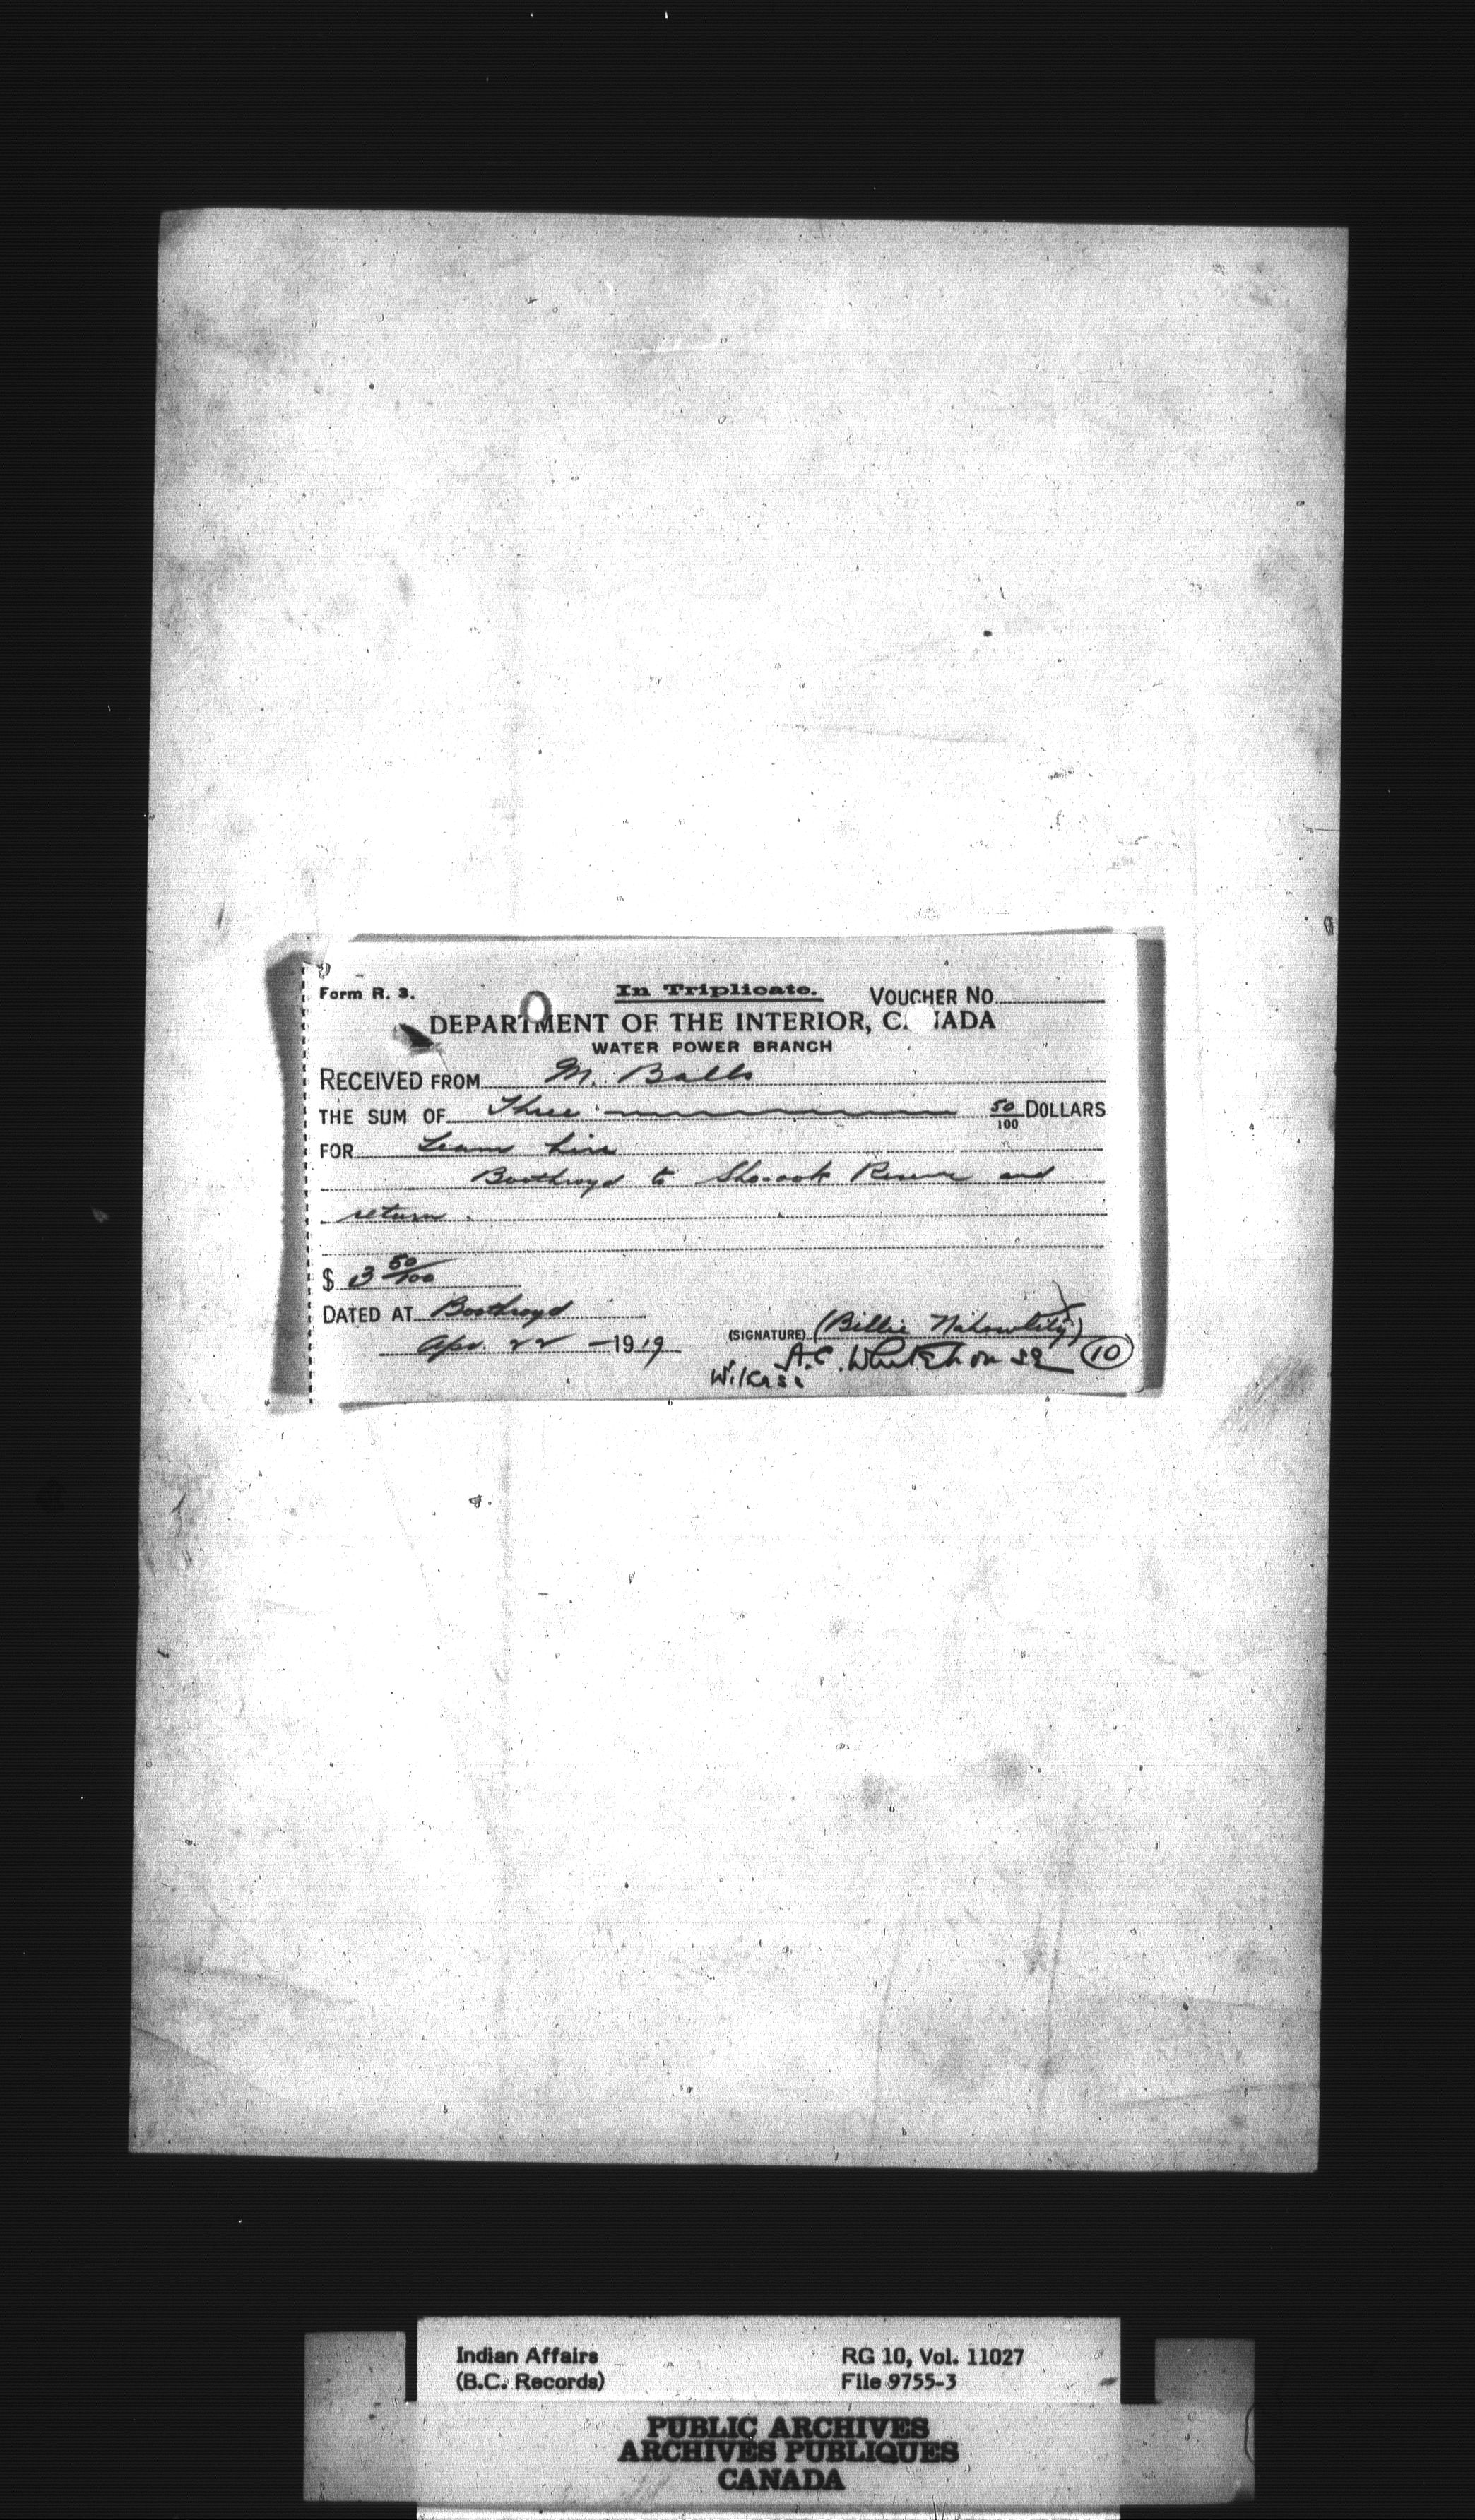 Form R. 3.
In Triplicate.
VOUCHER NO.
DEPARTMENT OF THE INTERIOR, CANADA
WATER POWER BRANCH
RECEIVED FROM M. Balls
THE SUM OF Three 50/100 DOLLARS
FOR team hire
Boothroyd to Sho-ook Reserve and
return.
$ 3 50/100
DATED AT Boothroyd
Apr 22 - 1919
(SIGNATURE) (Billie X
A.C. Whitehouse
10
Indian Affairs
(B.C. Records)
RG 10, Vol. 11027
File 9755-3
PUBLIC ARCHIVES
ARCHIVES PUBLIQUES
CANADA